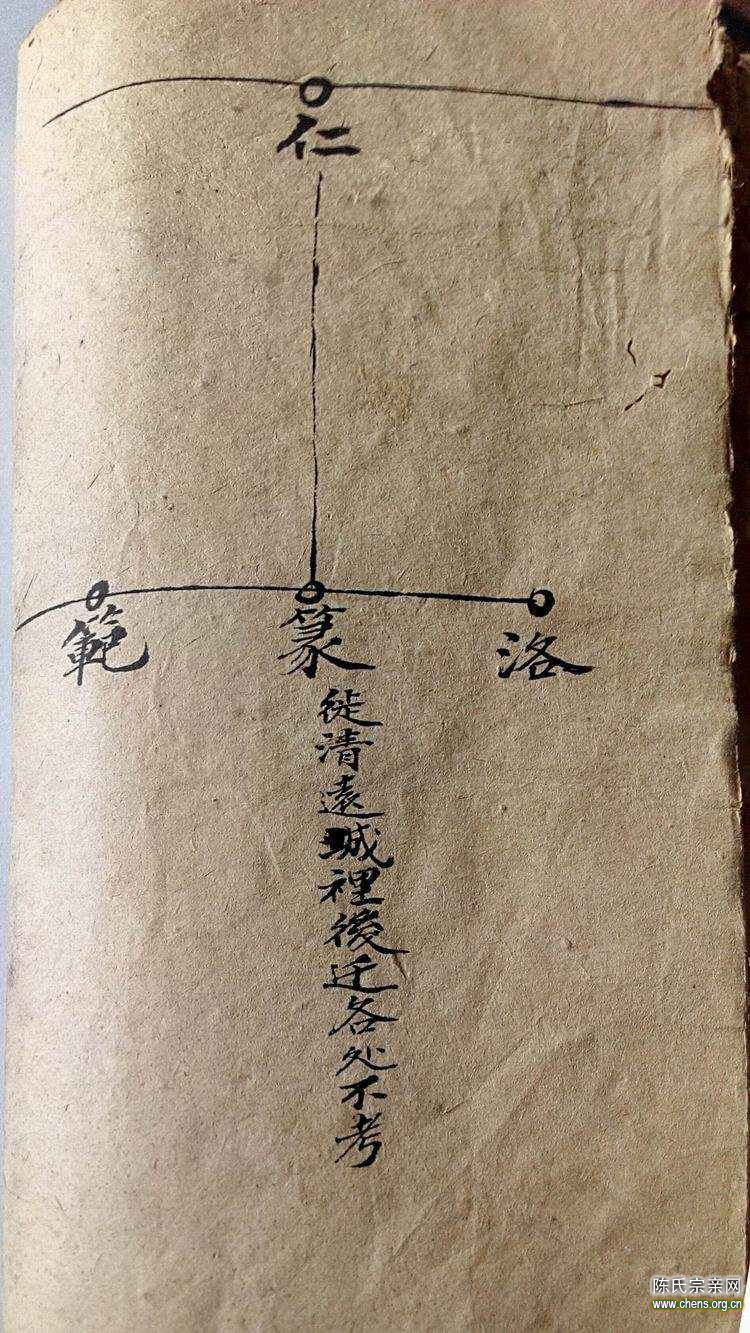 仁
洛
篆
範
徙清遠城裡後迁各处不考
陈氏宗亲网
www.chens.org.cn